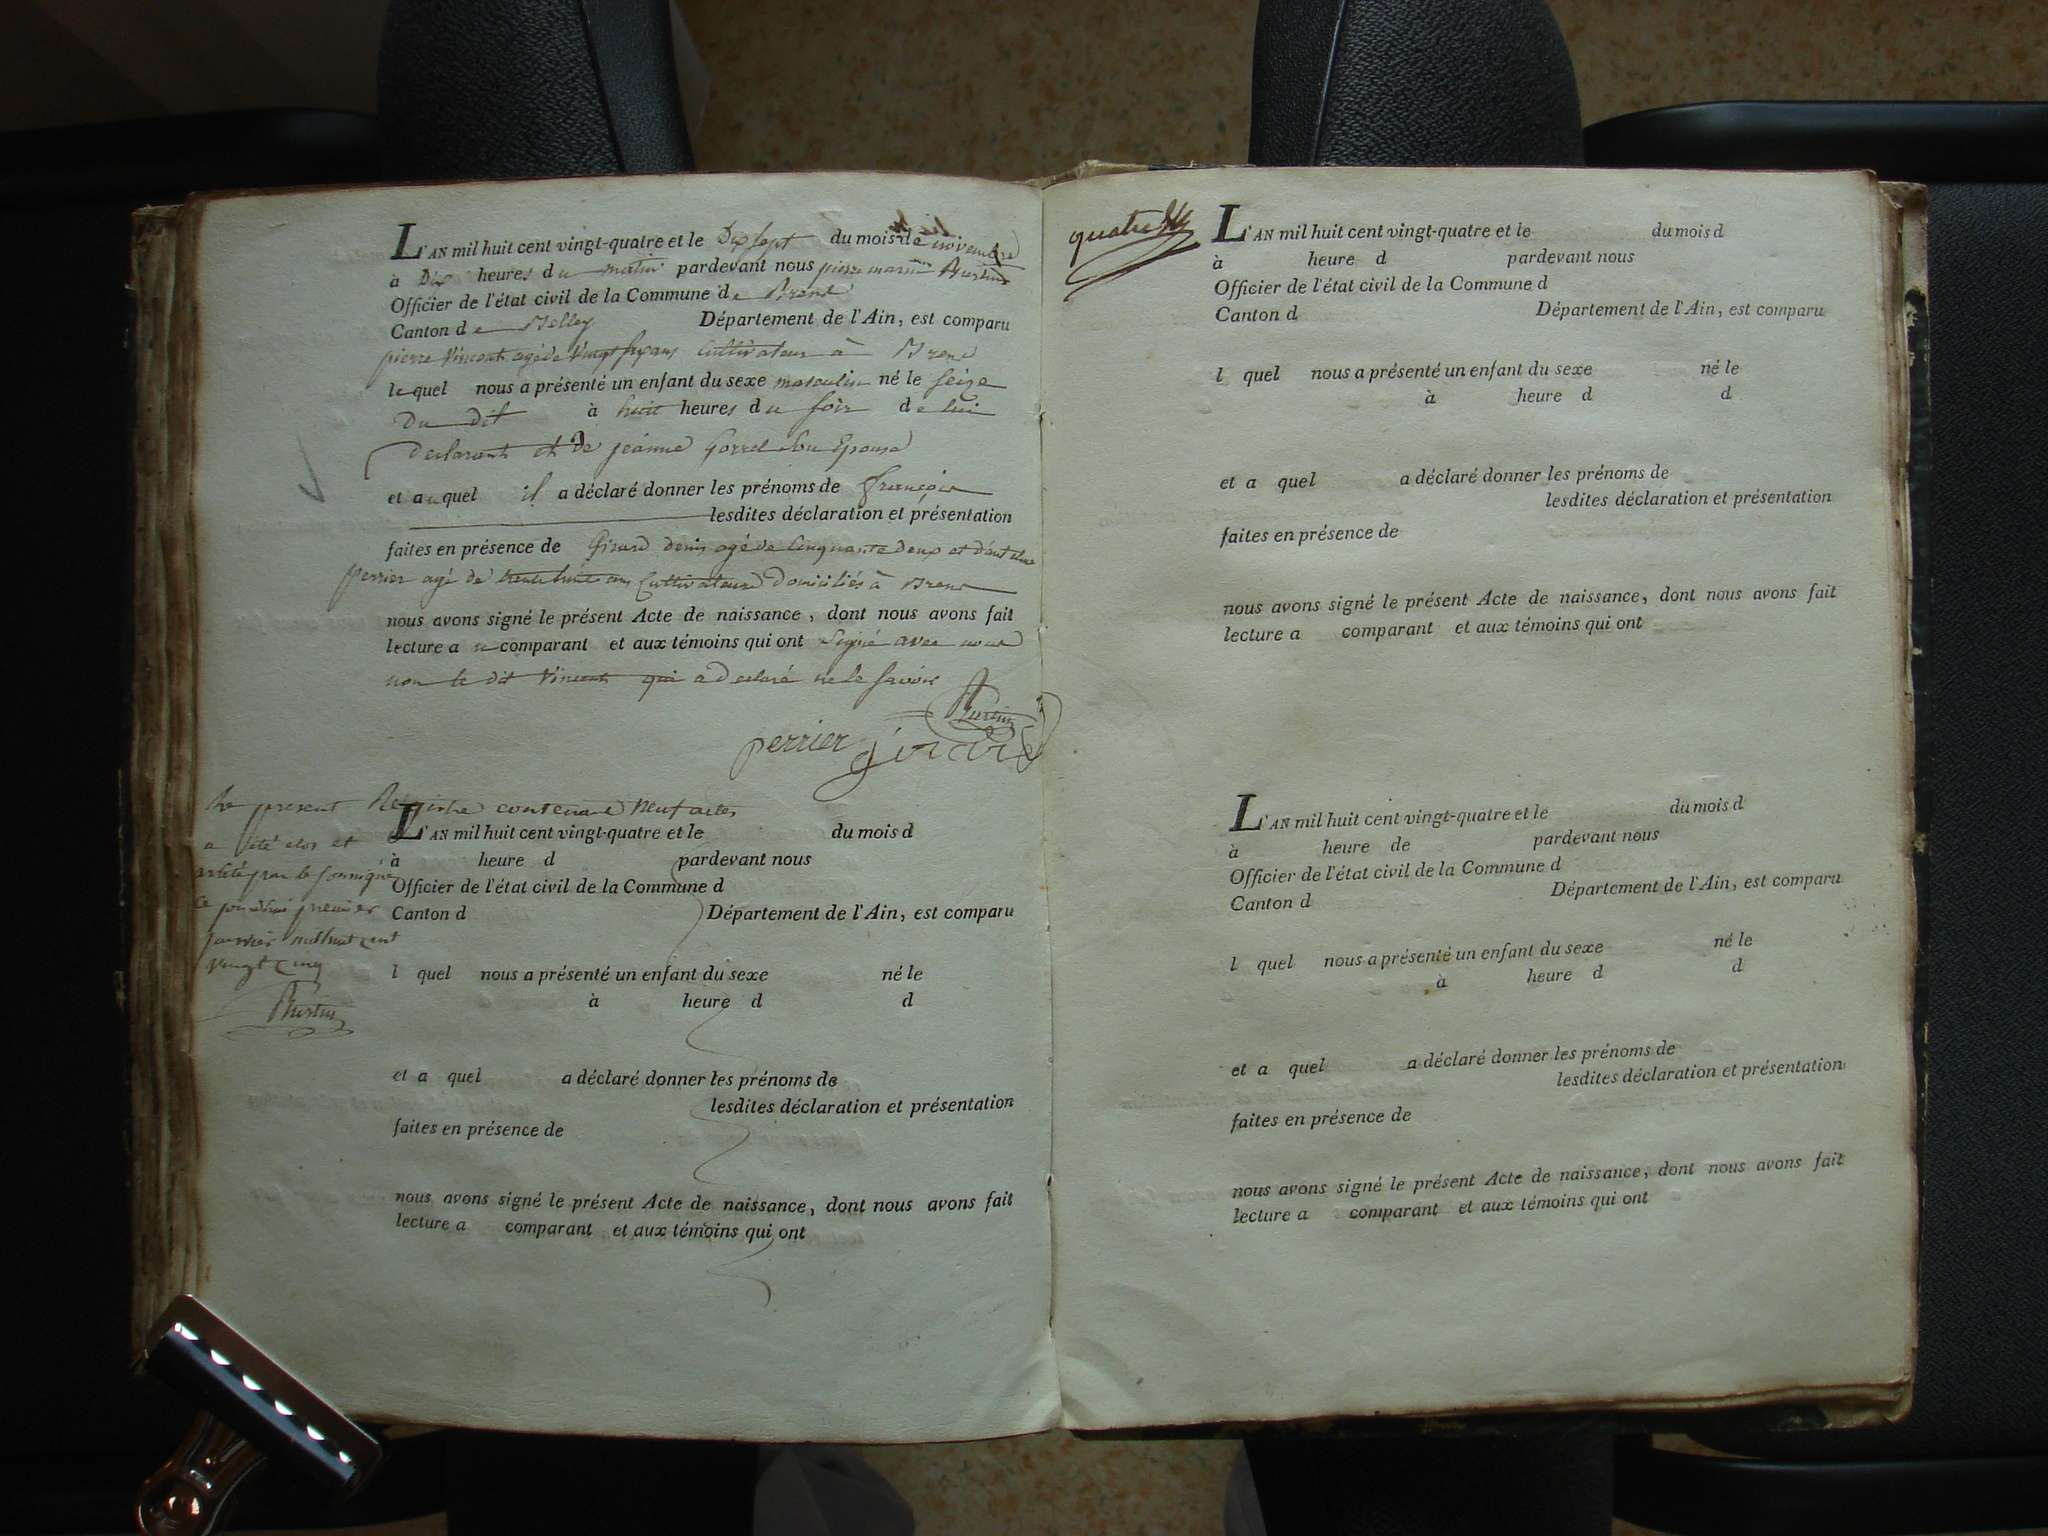 L'AN mil huit cent vingt-quatre et le Dix sept du mois de novembre
à Dix heures du matin pardevant nous pierre marin Burtin
Officier de l'état civil de la Commune de Brens
Canton de Belley Département de l'Ain, est comparu
pierre Vincent agé de Vingt six ans Cultivateur à Brens
lequel nous a présenté un enfant du sexe masculin né le seize
Du dit à huit heures du soir de lui
declarant et de jeanne Gorrel son Epouse
et auquel il a déclaré donner les prénoms de françois
lesdites déclaration et présentation
faites en présence de Girard denis agé de Cinquante deux et d'anthelme
perrier agé de trente huit ans Cultivateurs Domiciliés à Brens
nous avons signé le présent Acte de naissance, dont nous avons fait
lecture au comparant et aux témoins qui ont signé avec nous
non le dit Vincent qui a declaré ne le savoir
Burtin
perrier girard
Le present Registre contenant neuf actes
a été clos et
arrêté par le soussigné
ce jourdhui premier
janvier mil huit cent
vingt cinq
Burtin
L'AN mil huit cent vingt-quatre et le du mois d
à heure d pardevant nous
Officier de l'état civil de la Commune d
Canton d Département de l'Ain, est comparu
l quel nous a présenté un enfant du sexe né le
à heure d d
et a quel a déclaré donner les prénoms de
lesdites déclaration et présentation
faites en présence de
nous avons signé le présent Acte de naissance, dont nous avons fait
lecture a comparant et aux témoins qui ont
quatre
L'AN mil huit cent vingt-quatre et le du mois d
à heure d pardevant nous
Officier de l'état civil de la Commune d
Canton d Département de l'Ain, est comparu
l quel nous a présenté un enfant du sexe né le
à heure d d
et a quel a déclaré donner les prénoms de
lesdites déclaration et présentation
faites en présence de
nous avons signé le présent Acte de naissance, dont nous avons fait
lecture a comparant et aux témoins qui ont
L'AN mil huit cent vingt-quatre et le du mois d
à heure de pardevant nous
Officier de l'état civil de la Commune d
Canton d Département de l'Ain, est comparu
l quel nous a présenté un enfant du sexe né le
à heure d d
et a quel a déclaré donner les prénoms de
lesdites déclaration et présentation
faites en présence de
nous avons signé le présent Acte de naissance, dont nous avons fait
lecture a comparant et aux témoins qui ont